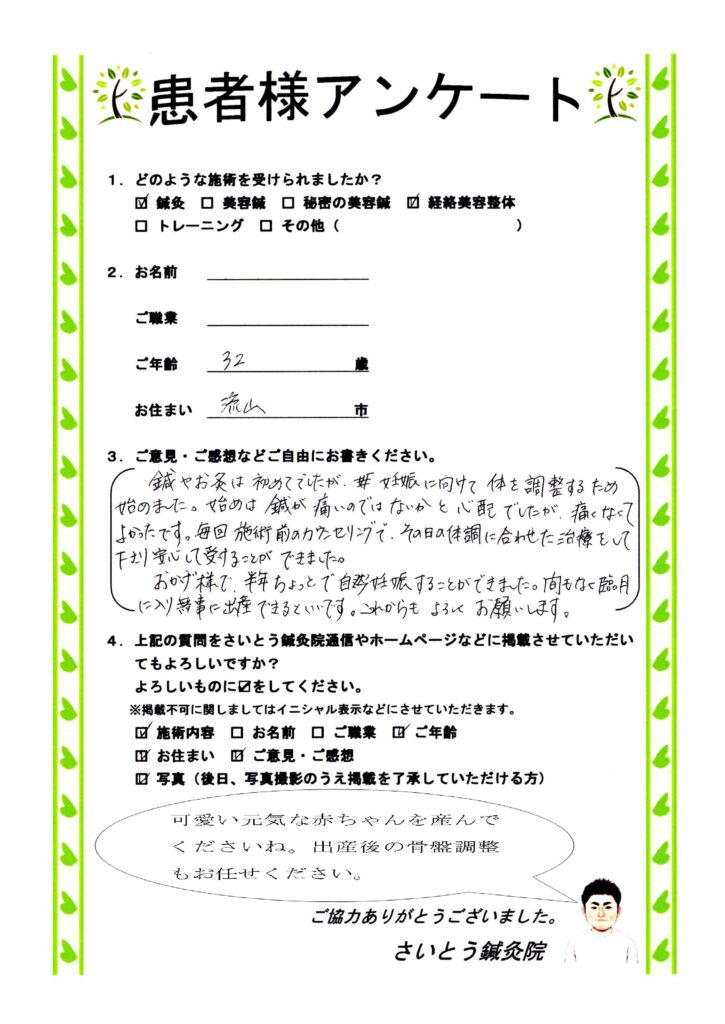 患者様アンケート
1．どのような施術を受けられましたか？
☑ 鍼灸 □ 美容鍼 □ 秘密の美容鍼 ☑ 経絡美容整体
□ トレーニング □ その他（ ）
2．お名前
ご職業
ご年齢 32 歳
お住まい 流山 市
3．ご意見・ご感想などご自由にお書きください。
鍼やお灸は初めてでしたが、妊娠に向けて体を調整するため
始めました。始めは鍼が痛いのではないかと心配でしたが、痛くなくて
よかったです。毎回施術前のカウンセリングで、その日の体調に合わせた治療をして
下さり安心して受けることができました。
おかげ様で、半年ちょっとで自然妊娠することができました。間もなく臨月
に入り無事に出産できるといいです。これからもよろしくお願いします。
4．上記の質問をさいとう鍼灸院通信やホームページなどに掲載させていただい
てもよろしいですか？
よろしいものに☑をしてください。
※掲載不可に関しましてはイニシャル表示などにさせていただきます。
☑ 施術内容 □ お名前 □ ご職業 ☑ ご年齢
☑ お住まい ☑ ご意見・ご感想
☑ 写真（後日、写真撮影のうえ掲載を了承していただける方）
可愛い元気な赤ちゃんを産んで
くださいね。出産後の骨盤調整
もお任せください。
ご協力ありがとうございました。
さいとう鍼灸院